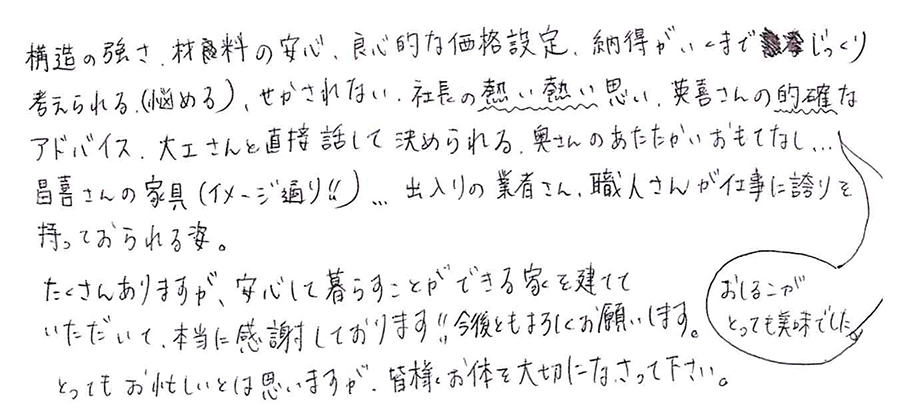 構造の強さ、材料の安心、良心的な価格設定、納得がいくまでじっくり
考えられる、(悩める)、せかされない、社長の熱い熱い思い、英喜さんの的確な
アドバイス、大工さんと直接話して決められる、奥さんのあたたかいおもてなし…
昌喜さんの家具(イメージ通り!!)…出入りの業者さん、職人さんが仕事に誇りを
持っておられる姿。
たくさんありますが、安心して暮らすことができる家を建てて
いただいて、本当に感謝しております!!今後ともよろしくお願いします。
とってもお忙しいとは思いますが、皆様、お体を大切になさって下さい。
おしるこが
とっても美味でした。